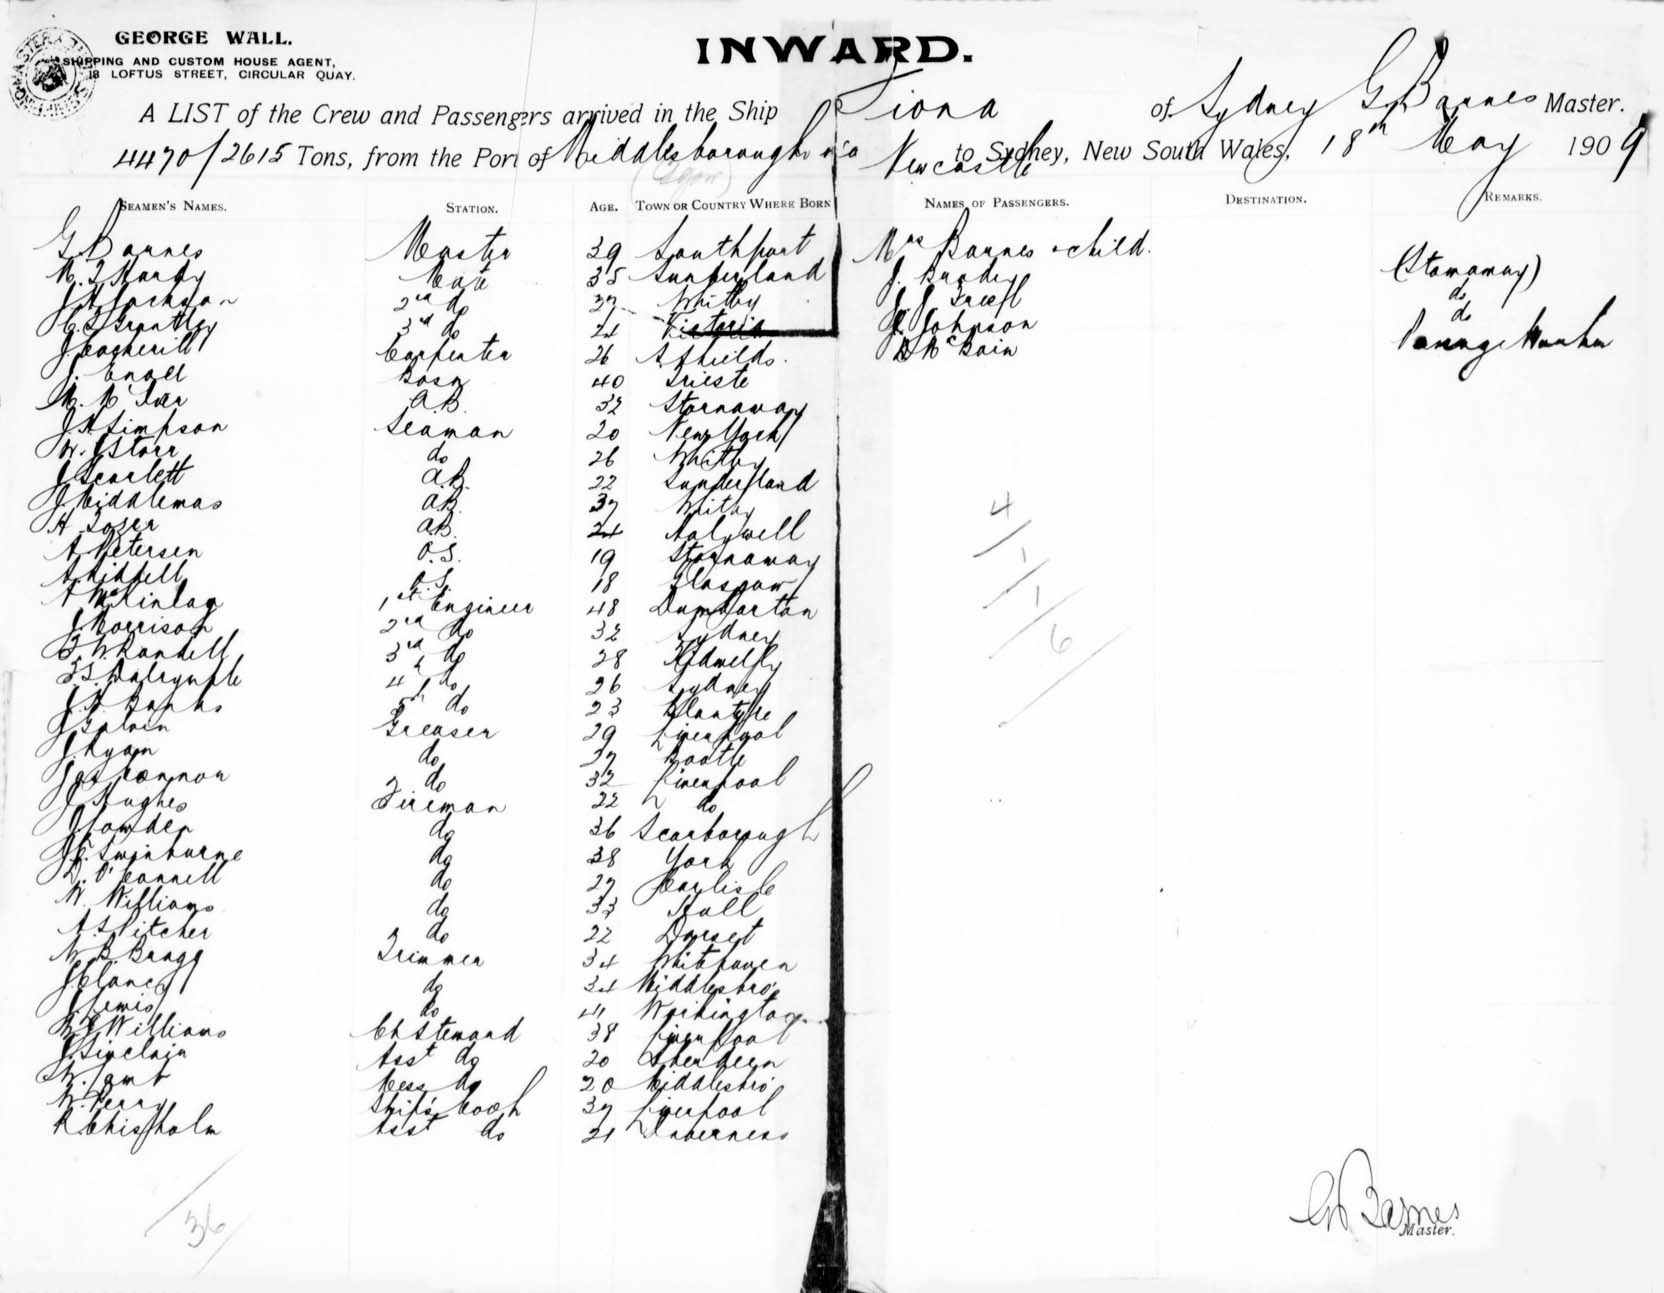 GEORGE WALL.
SHIPPING AND CUSTOM HOUSE AGENT,
18 LOFTUS STREET, CIRCULAR QUAY.
INWARD.
A LIST of the Crew and Passengers arrived in the Ship Fiona of Sydney G Barnes Master.
4470/2615 Tons, from the Port of Middlesborough via Newcastle to Sydney, New South Wales, 18th May 1909
SEAMEN'S NAMES. STATION. AGE. TOWN OR COUNTRY WHERE BORN NAMES OF PASSENGERS. DESTINATION. REMARKS.
G Barnes Master 39 Southport Mrs Barnes & child.
Hardy Mate 35 Sunderland J. Brady (Stowaway)
J H Jackson 2nd do 37 Whitby J. J. do
Grantley 3rd do 21 Victoria J. Johnson do
J Cockerill Carpenter 26 S. Shields. D McBain
J. Bosn 40 Trieste
M. McIver A.B. 32 Stornaway
J. H Simpson Seaman 20 New York
W. J Storr do 26 Whitby
J Scarlett A.B. 22 Sunderland
J. Middlemas A.B. 37 Whitby
H Tozer A.B. 24 Holywell
A Petersen O.S. 19 Stornaway
A Liddell O.S. 18 Glasgow
A McKinlay 1st Engineer 48 Dumbarton
J Morrison 2nd do 32 Sydney
T W Randell 3rd do 28 Kidwelly
T. S. Dalrymple 4th do 26 Sydney
J. Banks 5th do 23 Blantyre
J Galvin Greaser 29 Liverpool
J. Ryan do 37 Bootle
J O'Connor do 32 Liverpool
J Hughes Fireman 22 do
J Cowden do 36 Scarborough
J. Swinburne do 38 York
D. O'Connell do 27 Carlisle
W. Williams do 33 Hull
A. S Pitcher do 22 Dorset
W. B. Bragg Trimmer 34 Whitehaven
J Clancy do 34 Middlesbro'
J Lewis do 41 Workington
Williams Ch Steward 38 Liverpool
J Sinclair Asst do 20 Aberdeen
W. Lamb Mess do 20 Middlesbro'
W. Perry Ship's Cook 37 Liverpool
R Chisholm Asst do 21 Inverness
4/1/1/6
36
G Barnes
Master.